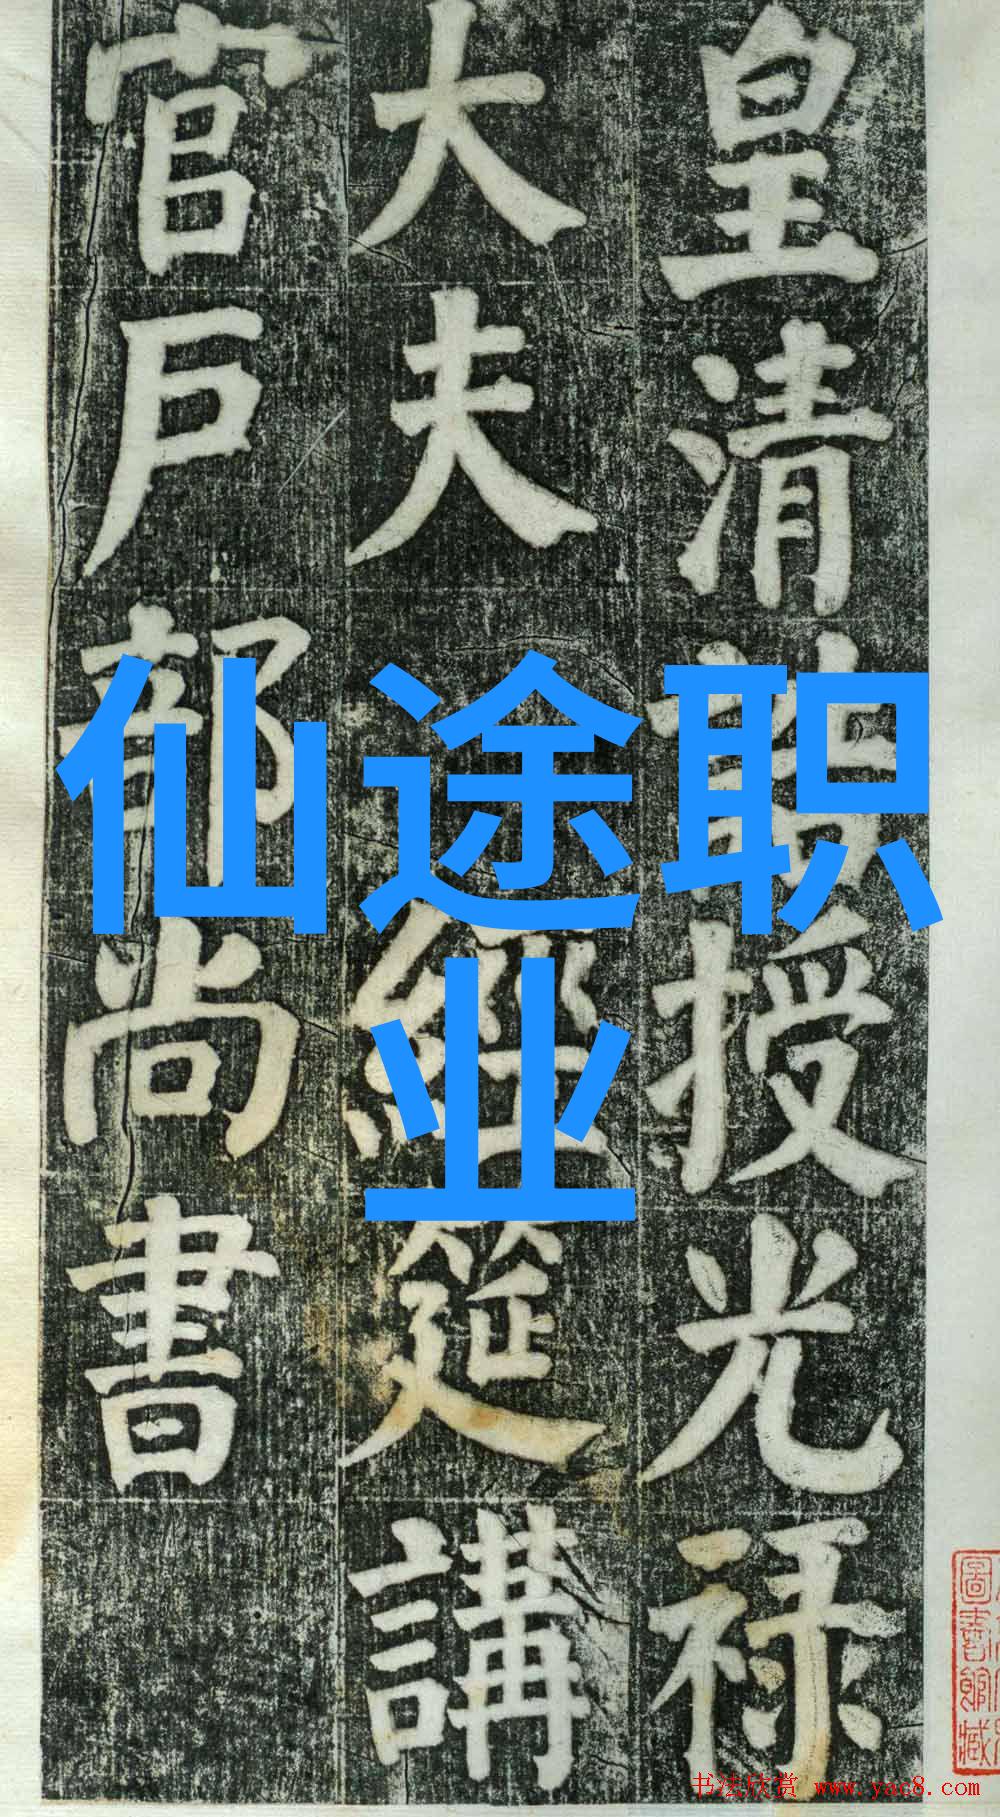 皇清誥授光禄
大夫經筵講
官戸部尚書
仙途职
业
圖書館藏
书法欣赏 www.yac8.com